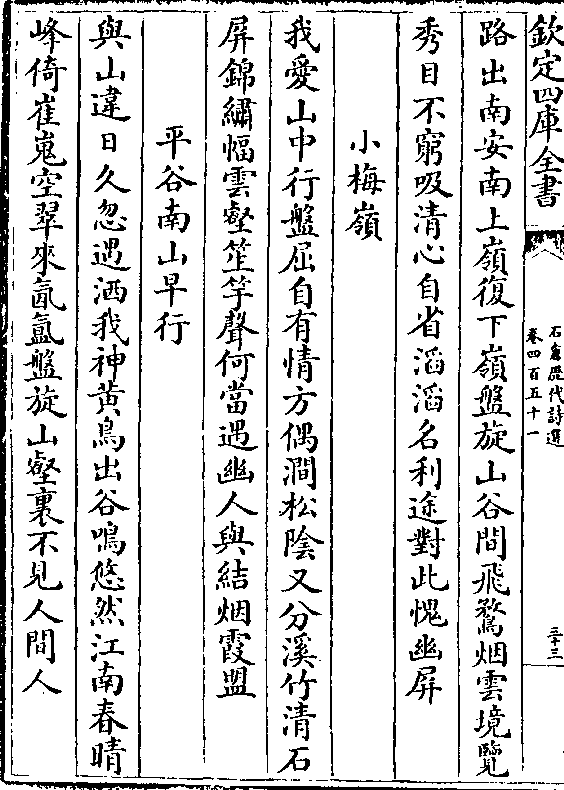 欽定四庫全書
石倉歷代詩選
卷四百五十一
三十三
路出南安南上嶺復下嶺盤旋山谷間飛騖烟雲境覽
秀目不窮吸清心自省滔滔名利途對此愧幽屏
小梅嶺
我愛山中行盤屈自有情方偶澗松陰又分溪竹清石
屏錦繡幅雲壑笙竽聲何當遇幽人與結烟霞盟
平谷南山早行
與山違日久忽遇洒我神黄鳥出谷鳴悠然江南春晴
峰倚崔嵬空翠來氤氲盤旋山壑裏不見人間人